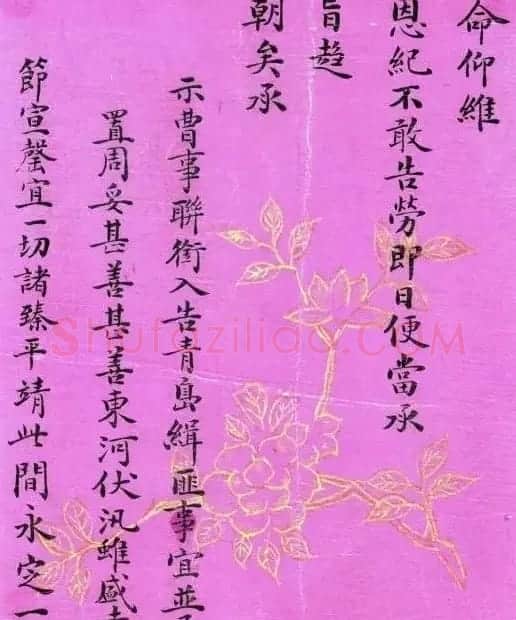 命仰維
恩紀不敢告勞即日便當承
旨趨
朝矣承
示曹事聯銜入告青島緝匪事宜並
置周妥甚善甚善東河伏汛雖盛
節宣罄宜一切諸臻平靖此間永定一
Shufaziliao.COM